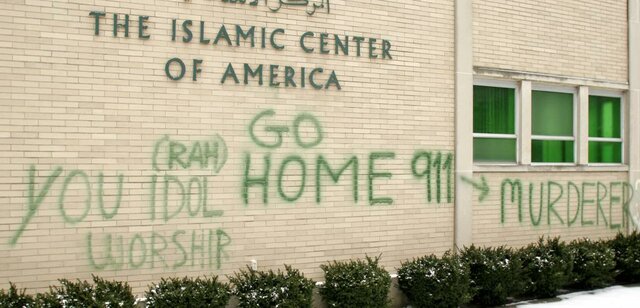 THE ISLAMIC CENTER
OF AMERICA
(RAH)
YOU IDOL
WORSHIP
GO
HOME 911 → MURDERER